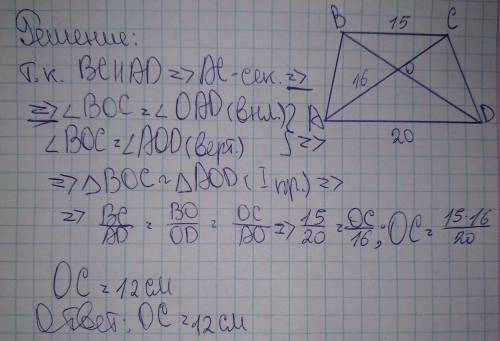 Решение:
Т.к. BC||AD => AC-сек. =>
=> ∠BOC = ∠OAD (внл.) }
∠BOC = ∠AOD (верт.) } =>
=> △BOC ~ △AOD (I пр.) =>
=> BC/AD = BO/OD = OC/AO => 15/20 = OC/16; OC = 15·16/20
OC = 12 см
Ответ: OC = 12 см
B 15 C
16 O
A D
20